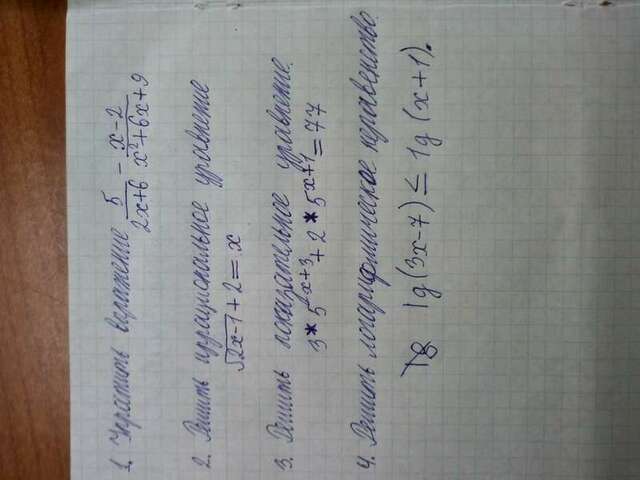 1. Упростить выражение \frac{5}{2x+6} - \frac{x-2}{x²+6x+9}
2. Решить иррациональное уравнение
√(2x-1)+2=x
3. Решить показательное уравнение.
3*5^{x+3}+2*5^{x+1}=77
4. Решить логарифмическое неравенство.
lg(3x-7)≤lg(x+1).